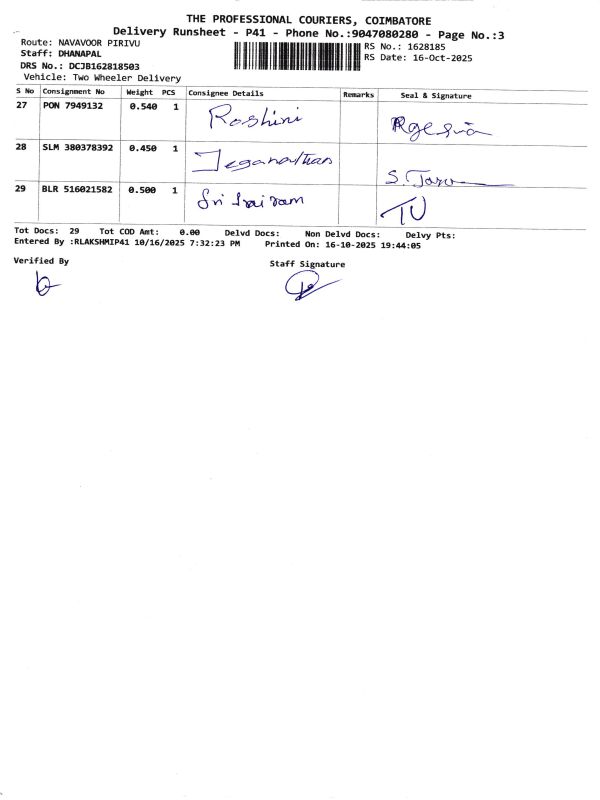 THE PROFESSIONAL COURIERS, COIMBATORE
Delivery Runsheet - P41 - Phone No.:9047080280 - Page No.:3
Route: NAVAVOOR PIRIVU
Staff: DHANAPAL
DRS No.: DCJB162818503
Vehicle: Two Wheeler Delivery
RS No.: 1628185
RS Date: 16-Oct-2025
S No Consignment No Weight PCS Consignee Details Remarks Seal & Signature
27 PON 7949132 0.540 1 Roshini
28 SLM 380378392 0.450 1 Jeganathan S.
29 BLR 516021582 0.500 1 Sri Sai ram
Tot Docs: 29 Tot COD Amt: 0.00 Delvd Docs: Non Delvd Docs: Delvy Pts:
Entered By :RLAKSHMIP41 10/16/2025 7:32:23 PM Printed On: 16-10-2025 19:44:05
Verified By Staff Signature